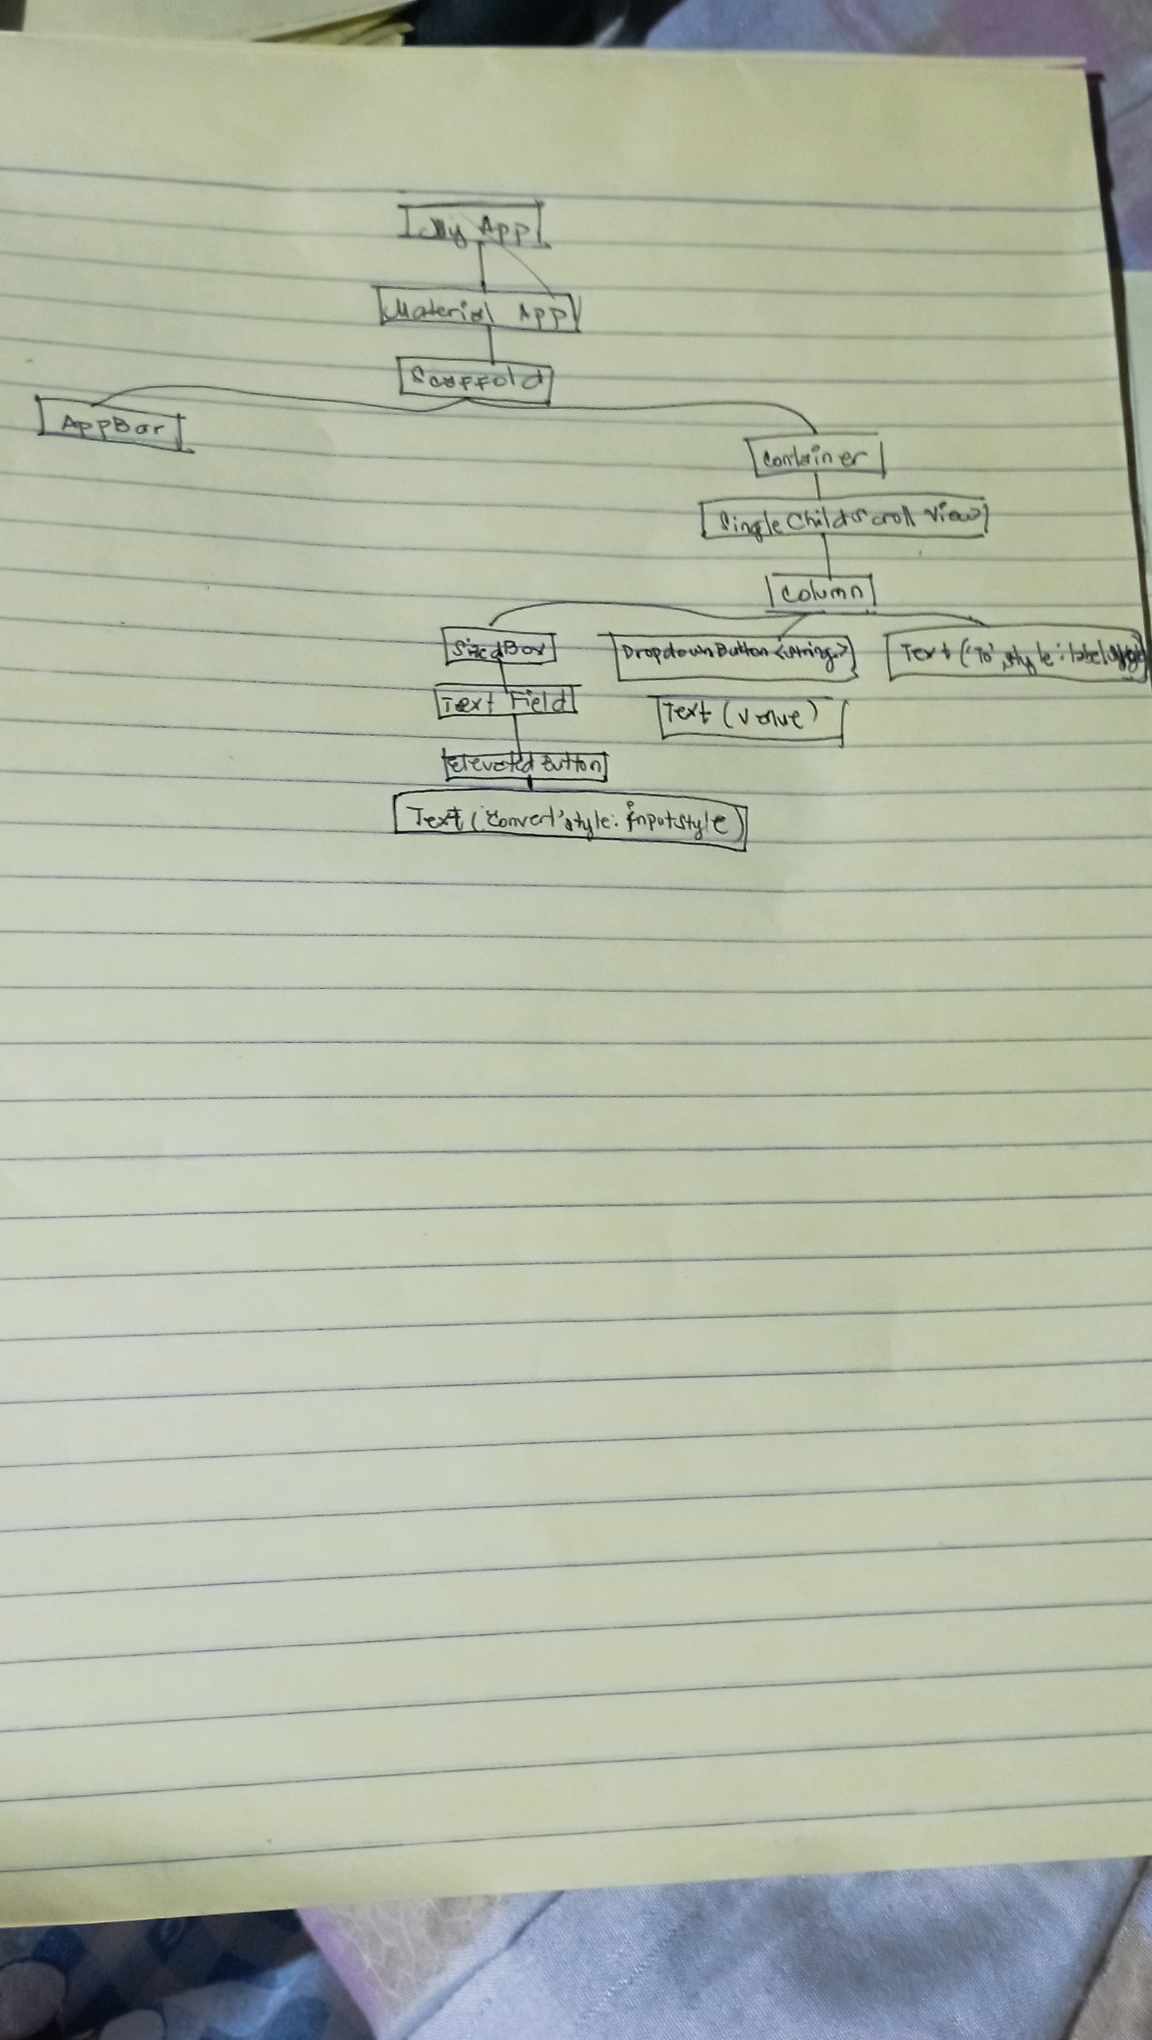 My App
Material App
Scaffold
AppBar
Container
SingleChildScroll View
Column
SizedBox
DropdownButton<String>
Text ('To', style: label
Text Field
Text (value)
Elevated Button
Text ('Convert' style: inputstyle)